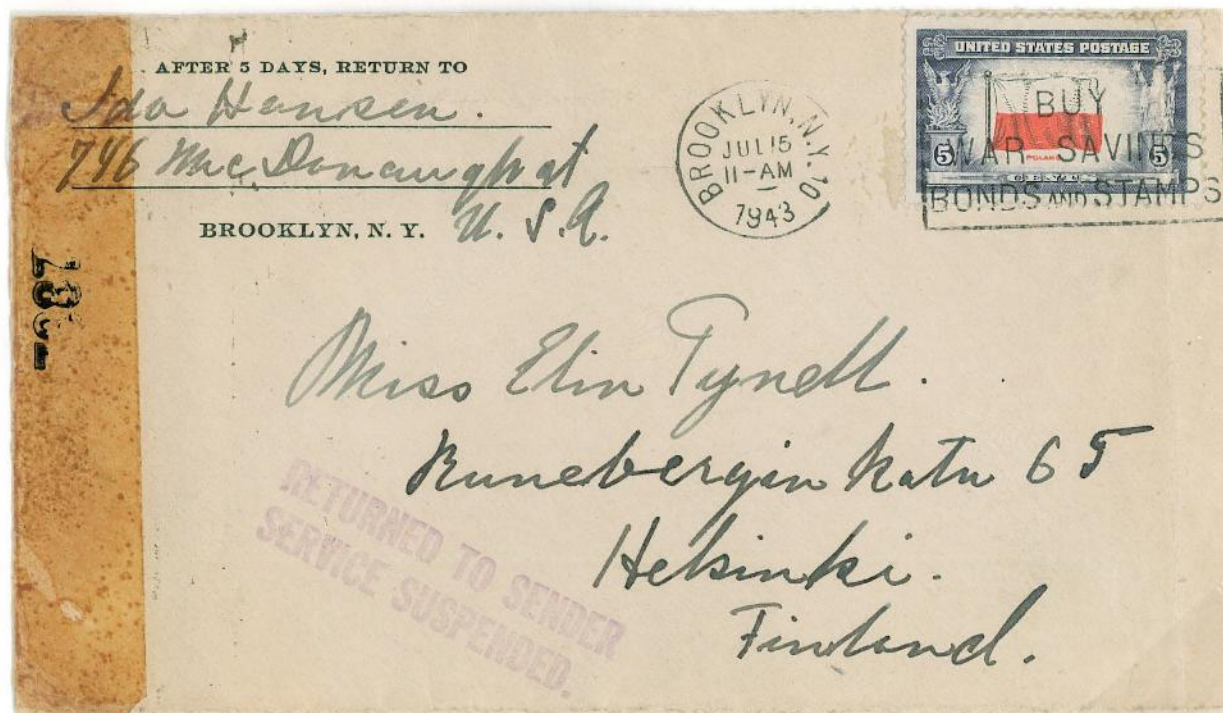 AFTER 5 DAYS, RETURN TO
Ida Hansen.
746 Mac Donough st
BROOKLYN, N. Y. U. S. A.
BROOKLYN, N.Y. 10
JUL 15
11-AM
1943
UNITED STATES POSTAGE
POLAND
5 5
BUY
WAR SAVINGS
BONDS AND STAMPS
Miss Elin Tyndll.
Runebergin Katu 65
Helsinki.
Finland.
RETURNED TO SENDER
SERVICE SUSPENDED.